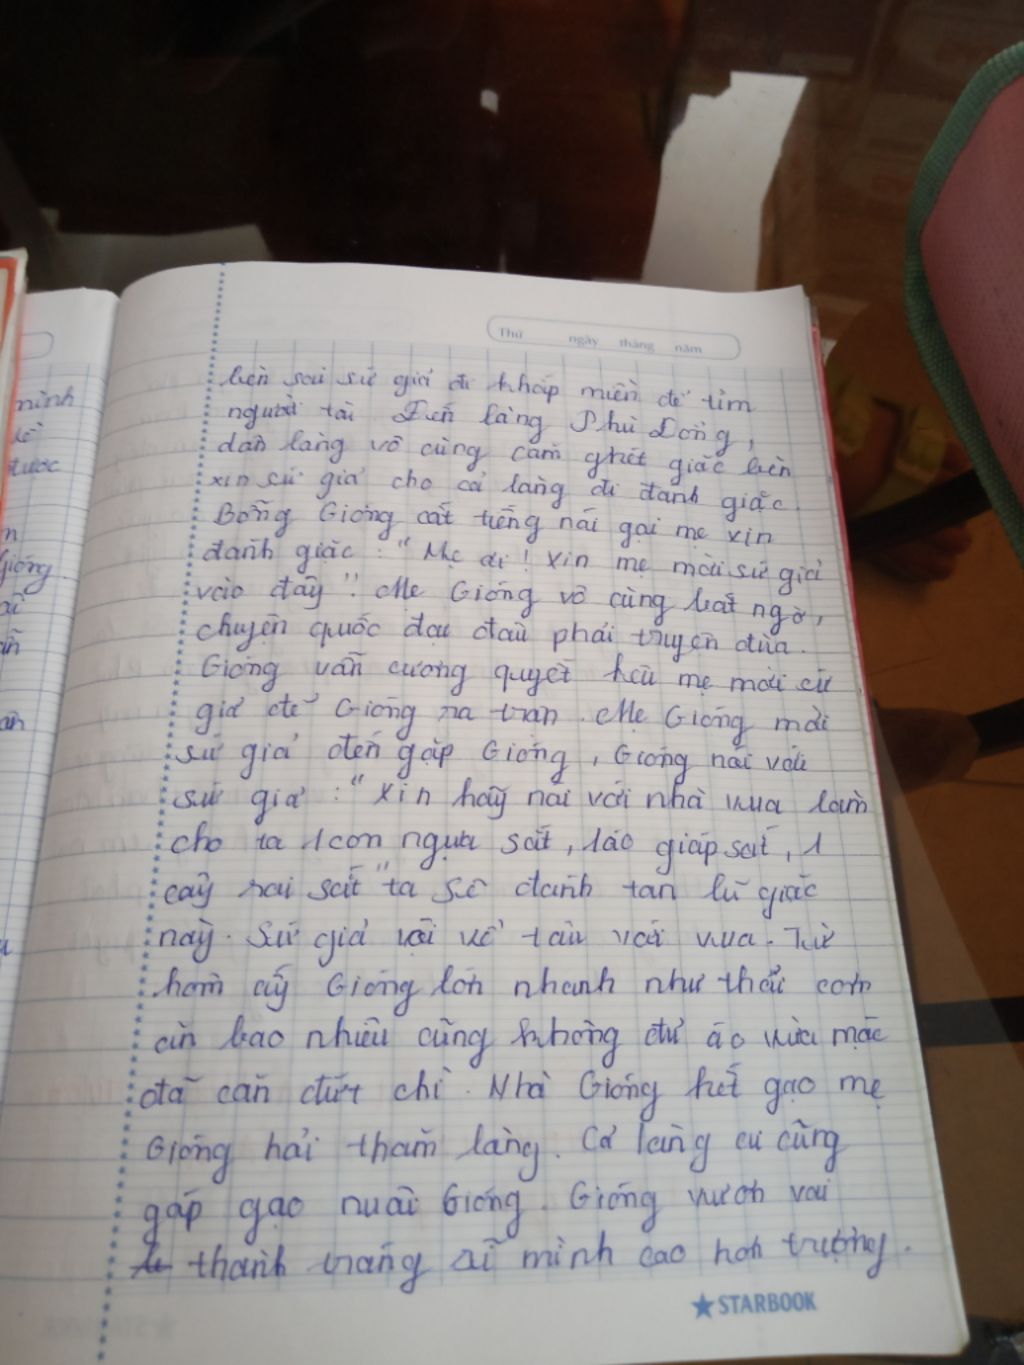 Thứ ngày tháng năm
bèn sai sứ giả đi khắp miền để tìm
người tài Đến làng Phù Đổng,
dân làng vô cùng căm ghét giặc bèn
xin sứ giả cho cả làng đi đánh giặc.
Bỗng Gióng cất tiếng nói gọi mẹ xin
đánh giặc : "Mẹ ơi! Xin mẹ mời sứ giả
vào đây". Mẹ Gióng vô cùng bất ngờ,
chuyện quốc đại đâu phải truyện đùa.
Gióng vẫn cương quyết kêu mẹ mời sứ
giả để Gióng ra trận. Mẹ Gióng mời
sứ giả đến gặp Gióng, Gióng nói với
sứ giả : "Xin hãy nói với nhà vua làm
cho ta 1 con ngựa sắt, 1 áo giáp sắt, 1
cây roi sắt" ta sẽ đánh tan lũ giặc
này. Sứ giả vội về tâu với vua. Từ
hôm ấy Gióng lớn nhanh như thổi cơm
ăn bao nhiêu cũng không đủ áo vừa mặc
đã căn đứt chỉ. Nhà Gióng hết gạo mẹ
Gióng hải thăm làng. Cả làng cũng
góp gạo nuôi Gióng. Gióng vươn vai
thành tráng sĩ mình cao hơn trượng.
STARBOOK
mình
được
Gióng